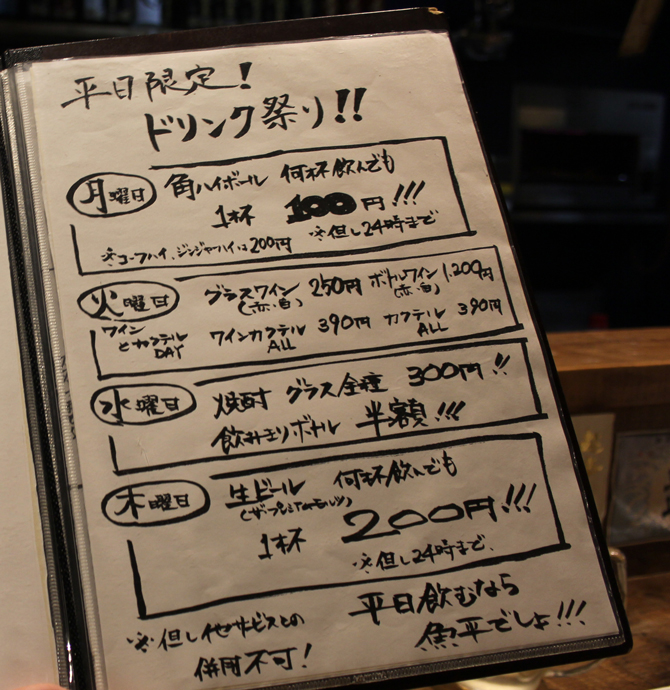 平日限定!
ドリンク祭り!!
月曜日
角ハイボール 何杯飲んでも
1杯 100円!!!
※但し24時まで
※コークハイ、ジンジャーハイは200円
火曜日
ワインとカクテルDAY
グラスワイン(赤・白) 250円 ボトルワイン(赤・白) 1,200円
ワインカクテルALL 390円 カクテルALL 390円
水曜日
焼酎 グラス全種 300円!!
飲みきりボトル 半額!!!
木曜日
生ビール 何杯飲んでも
(ザ・プレミアムモルツ)
1杯 200円!!!
※但し24時まで、
※但し他サービスとの
併用不可!
平日飲むなら
魚平でしょ!!!